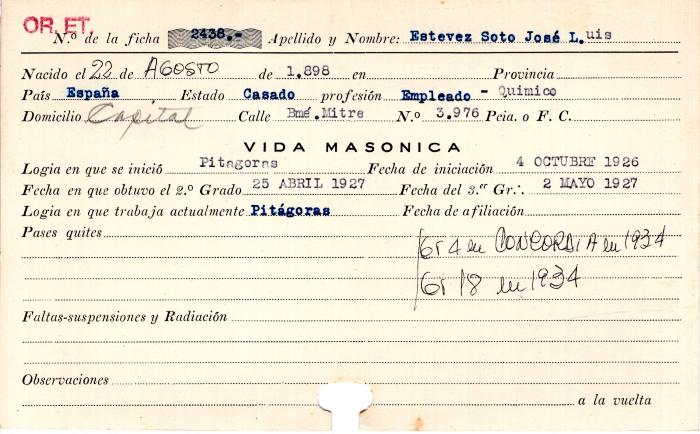 OR. ET.
N.º de la ficha 2438.- Apellido y Nombre: Estevez Soto José Luis
Nacido el 22 de AGOSTO de 1.898 en Provincia
País España Estado Casado profesión Empleado - Quimico
Domicilio Capital Calle Bmé.Mitre N.º 3.976 Pcia. o F. C.
VIDA MASONICA
Logia en que se inició Pitagoras Fecha de iniciación 4 OCTUBRE 1926
Fecha en que obtuvo el 2.º Grado 25 ABRIL 1927 Fecha del 3.er Gr.·. 2 MAYO 1927
Logia en que trabaja actualmente Pitágoras Fecha de afiliación
Pases quites
Gr 4 en CONCORDIA en 1934
Gr 18 en 1934
Faltas-suspensiones y Radiación
Observaciones
a la vuelta